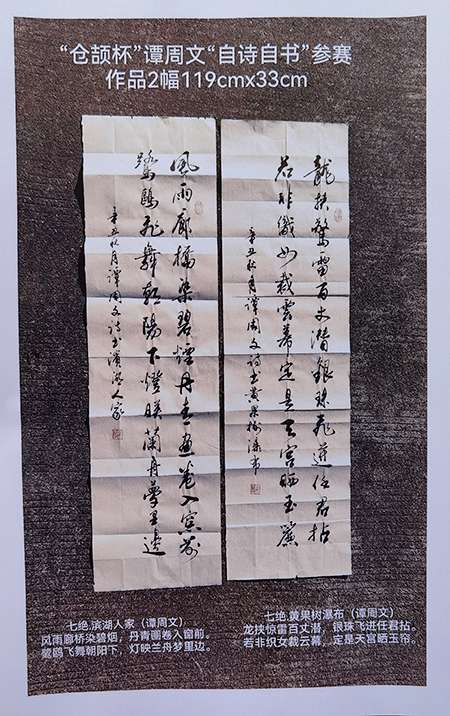 “仓颉杯”谭周文“自诗自书”参赛
作品2幅119cmx33cm
龍挾驚雷百丈潛銀珠飛迸任君拈
若非織女裁雲幕定是天宮晒玉簾
辛丑秋月譚周文诗书黄果樹瀑布
風雨廊橋染碧煙丹青畫卷入窗前
鷺鷗飛舞朝陽下燈映蘭舟夢里邊
辛丑秋月譚周文诗书濱湖人家
七绝.滨湖人家（谭周文）
风雨廊桥染碧烟，丹青画卷入窗前。
鹭鸥飞舞朝阳下，灯映兰舟梦里边。
七绝.黄果树瀑布（谭周文）
龙挟惊雷百丈潜，银珠飞迸任君拈。
若非织女裁云幕，定是天宫晒玉帘。